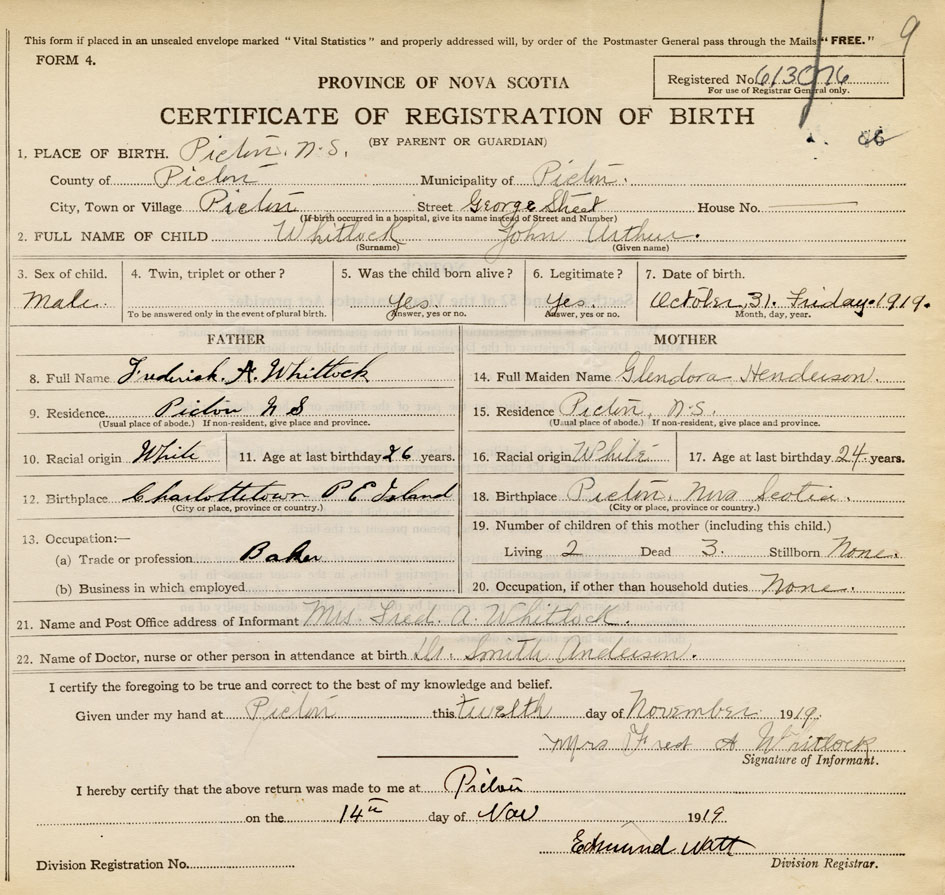 This form if placed in an unsealed envelope marked "Vital Statistics" and properly addressed will, by order of the Postmaster General pass through the Mails "FREE." 9
FORM 4.
PROVINCE OF NOVA SCOTIA
Registered No. 613076
For use of Registrar General only.
CERTIFICATE OF REGISTRATION OF BIRTH
(BY PARENT OR GUARDIAN)
1, PLACE OF BIRTH. Pictou, N.S.
County of Pictou Municipality of Pictou.
City, Town or Village Pictou Street George Street House No.
(If birth occurred in a hospital, give its name instead of Street and Number)
2. FULL NAME OF CHILD Whitlock John Arthur.
(Surname) (Given name)
3. Sex of child. 4. Twin, triplet or other? 5. Was the child born alive? 6. Legitimate? 7. Date of birth.
Male. Yes. Yes. October, 31. Friday. 1919.
To be answered only in the event of plural birth. Answer, yes or no. Answer, yes or no. Month, day, year.
FATHER MOTHER
8. Full Name Frederick. A. Whitlock 14. Full Maiden Name Glendora Henderson.
9. Residence. Pictou N S 15. Residence Pictou, N.S.
(Usual place of abode.) If non-resident, give place and province. (Usual place of abode.) If non-resident, give place and province.
10. Racial origin White 11. Age at last birthday 26 years. 16. Racial origin White 17. Age at last birthday 24 years.
12. Birthplace Charlottetown P E Island 18. Birthplace Pictou, Nova Scotia.
(City or place, province or country.) (City or place, province or country.)
13. Occupation:— 19. Number of children of this mother (including this child.)
(a) Trade or profession Baker Living 2 Dead 3. Stillborn None.
(b) Business in which employed 20. Occupation, if other than household duties None.
21. Name and Post Office address of Informant Mrs. Fred. A. Whitlock.
22. Name of Doctor, nurse or other person in attendance at birth Dr. Smith Anderson.
I certify the foregoing to be true and correct to the best of my knowledge and belief.
Given under my hand at Pictou this twelth day of November 1919.
Mrs Fred A Whitlock
Signature of Informant.
I hereby certify that the above return was made to me at Pictou
on the 14th day of Nov 1919
Edmund Watt
Division Registration No. Division Registrar.